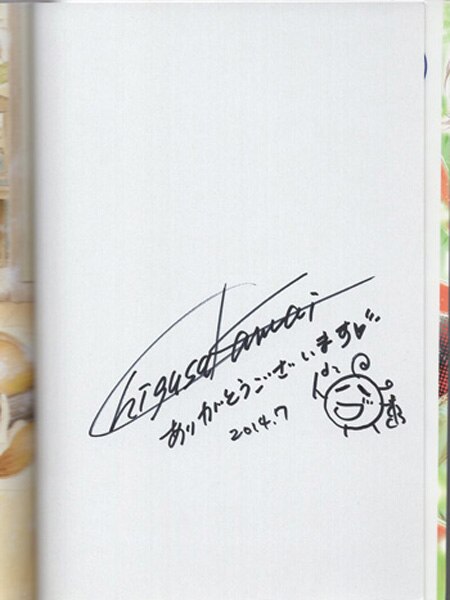 Chigusa Kawai
ありがとうございます♥
2014.7